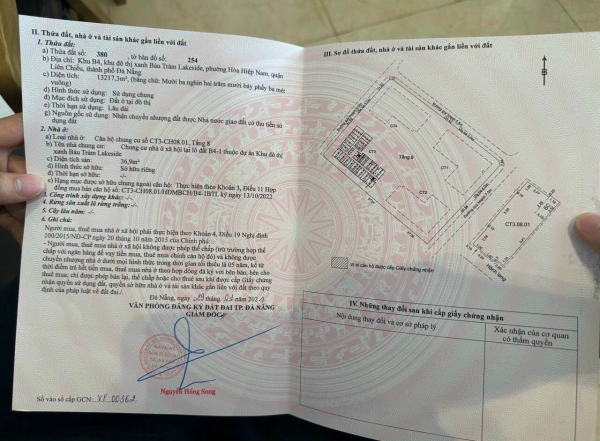 II. Thửa đất, nhà ở và tài sản khác gắn liền với đất
1. Thửa đất:
a) Thửa đất số: 380 , tờ bản đồ số: 254
b) Địa chỉ: Khu B4, khu đô thị xanh Bàu Tràm Lakeside, phường Hòa Hiệp Nam, quận
Liên Chiểu, thành phố Đà Nẵng
c) Diện tích: 13217,3m² (bằng chữ: Mười ba nghìn hai trăm mười bảy phẩy ba mét
vuông)
d) Hình thức sử dụng: Sử dụng chung
đ) Mục đích sử dụng: Đất ở tại đô thị
e) Thời hạn sử dụng: Lâu dài
g) Nguồn gốc sử dụng: Nhận chuyển nhượng đất được Nhà nước giao đất có thu tiền sử
dụng đất
2. Nhà ở:
a) Loại nhà ở: Căn hộ chung cư số CT3-CH08.01, Tầng 8
b) Tên nhà chung cư: Chung cư nhà ở xã hội tại lô đất B4-1 thuộc dự án Khu đô
thị xanh Bàu Tràm Lakeside
c) Diện tích sàn: 36,9m²
d) Hình thức sở hữu: Sở hữu riêng
đ) Thời hạn sở hữu: -/-
e) Hạng mục được sở hữu chung ngoài căn hộ: Thực hiện theo Khoản 3, Điều 11 Hợp
đồng mua bán căn hộ số: CT3-CH08.01/HĐMBCH/B4-1BTL ký ngày 13/10/2022
3. Công trình xây dựng khác: -/-
4. Rừng sản xuất là rừng trồng: -/-
5. Cây lâu năm: -/-
6. Ghi chú:
Người mua, thuê mua nhà ở xã hội phải thực hiện theo Khoản 4, Điều 19 Nghị định
100/2015/NĐ-CP ngày 20 tháng 10 năm 2015 của Chính phủ:
- Người mua, thuê mua nhà ở xã hội không được phép thế chấp (trừ trường hợp thế
chấp với ngân hàng để vay tiền mua, thuê mua chính căn hộ đó) và không được
chuyển nhượng nhà ở dưới mọi hình thức trong thời gian tối thiểu là 05 năm, kể từ
thời điểm trả hết tiền mua, thuê mua nhà ở theo hợp đồng đã ký với bên bán, bên cho
thuê mua; chỉ được phép bán lại, thế chấp hoặc cho thuê sau khi được cấp Giấy chứng
nhận quyền sử dụng đất, quyền sở hữu nhà ở và tài sản khác gắn liền với đất theo quy
định của pháp luật về đất đai./.
Đà Nẵng, ngày tháng năm
VĂN PHÒNG ĐĂNG KÝ ĐẤT ĐAI TP. ĐÀ NẴNG
GIÁM ĐỐC
Nguyễn Hồng Song
Số vào sổ cấp GCN:
III. Sơ đồ thửa đất, nhà ở và tài sản khác gắn liền với đất
B
CT4
CT3
Tầng 8
CT1
CT2
CT3-08.01
Hành lang
Vị trí căn hộ được cấp Giấy chứng nhận
IV. Những thay đổi sau khi cấp giấy chứng nhận
Nội dung thay đổi và cơ sở pháp lý
Xác nhận của cơ quan
có thẩm quyền